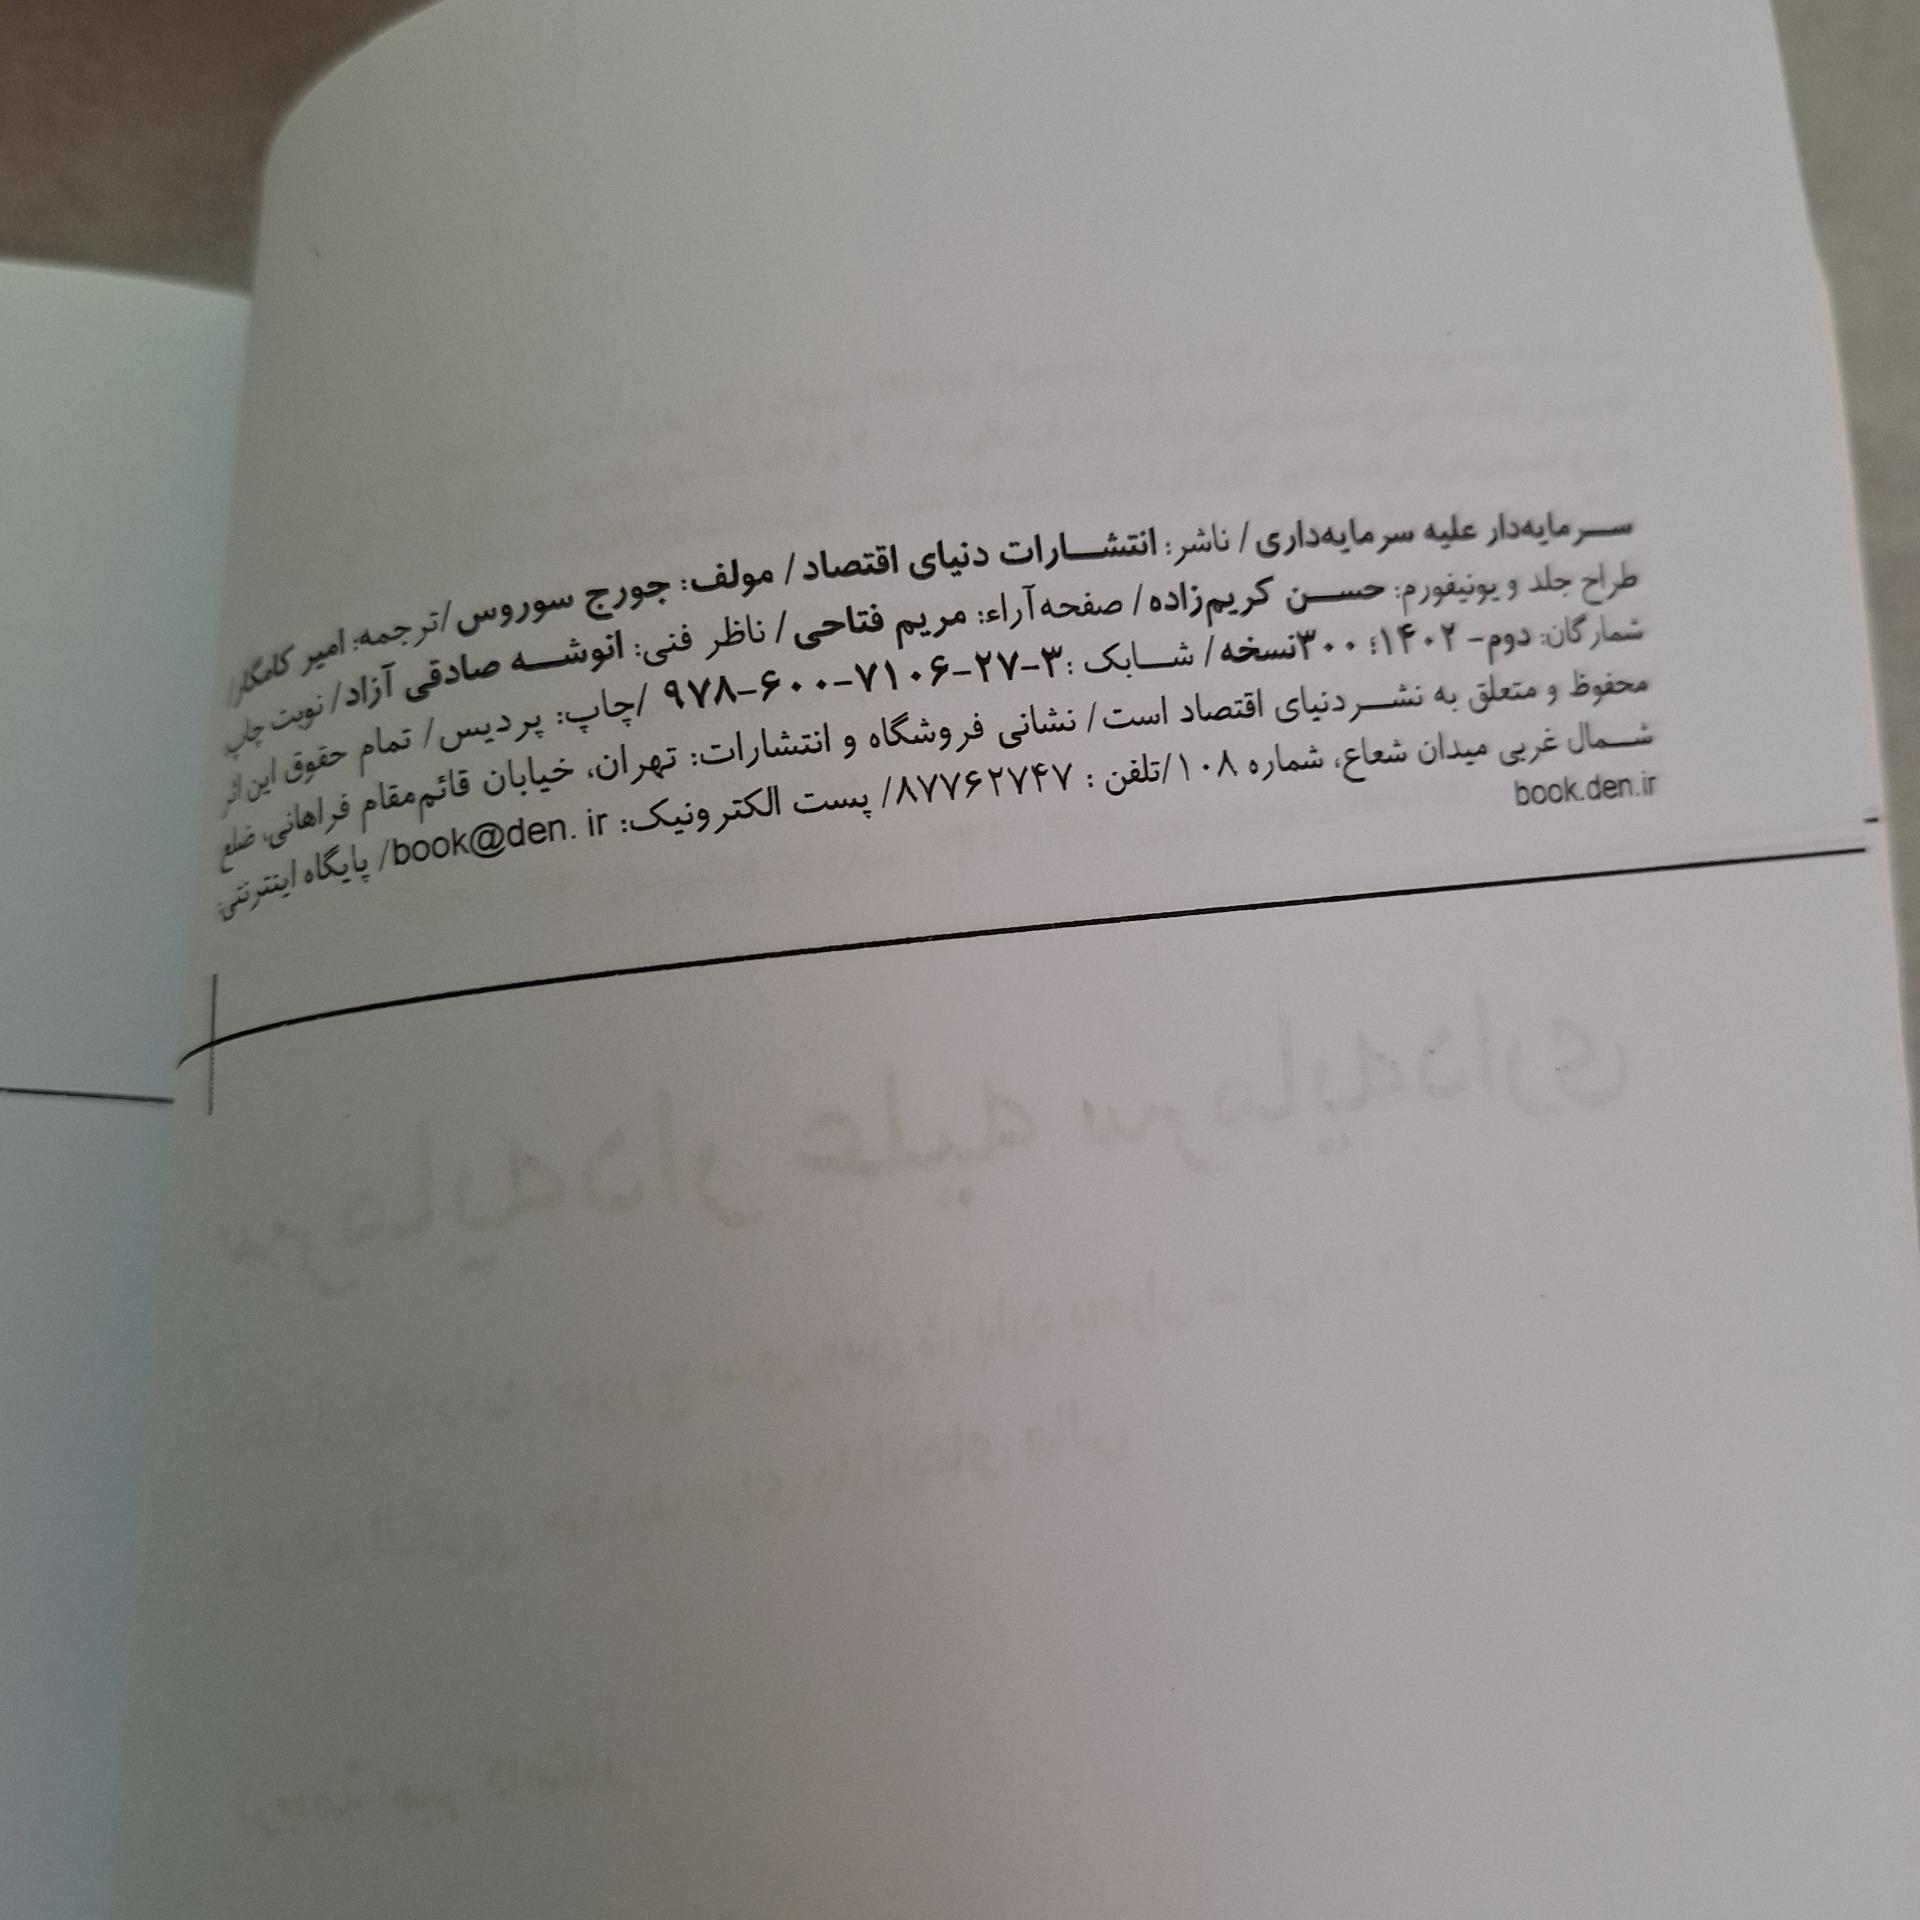 سرمایه‌دار علیه سرمایه‌داری/ ناشر: انتشارات دنیای اقتصاد/ مولف: جورج سوروس/ترجمه: امیر کامگار/
طراح جلد و یونیفورم: حسن کریم‌زاده/ صفحه‌آراء: مریم فتاحی/ ناظر فنی: انوشه صادقی آزاد/ نوبت چاپ
شمارگان: دوم- ۱۴۰۲؛ ۳۰۰نسخه/ شابک :۳-۲۷-۷۱۰۶-۶۰۰-۹۷۸ /چاپ: پردیس/ تمام حقوق این اثر
محفوظ و متعلق به نشر دنیای اقتصاد است/ نشانی فروشگاه و انتشارات: تهران، خیابان قائم‌مقام فراهانی، ضلع
شمال غربی میدان شعاع، شماره ۱۰۸/تلفن : ۸۷۷۶۲۷۴۷/ پست الکترونیک: book@den. ir/ پایگاه اینترنتی:
book.den.ir